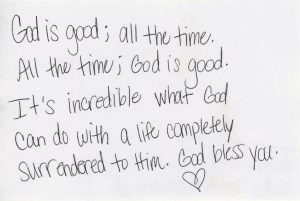 God is good; all the time.
All the time; God is good.
It's incredible what God
can do with a life completely
surrendered to Him. God bless you.
♡